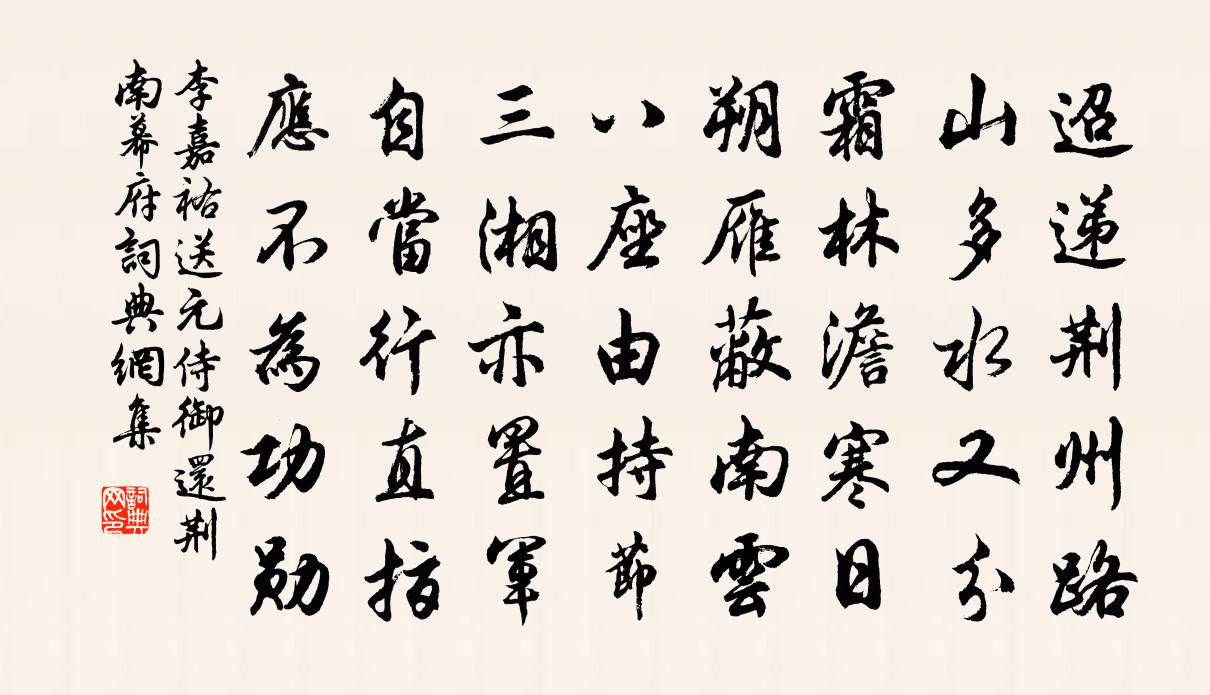 迢递荆州路
山多水又分
霜林澹寒日
朔雁蔽南雲
八座由持節
三湘亦置軍
自當行直指
應不為功勋
李嘉祐送元侍御還荆
南幕府詞典網集
詞典网印